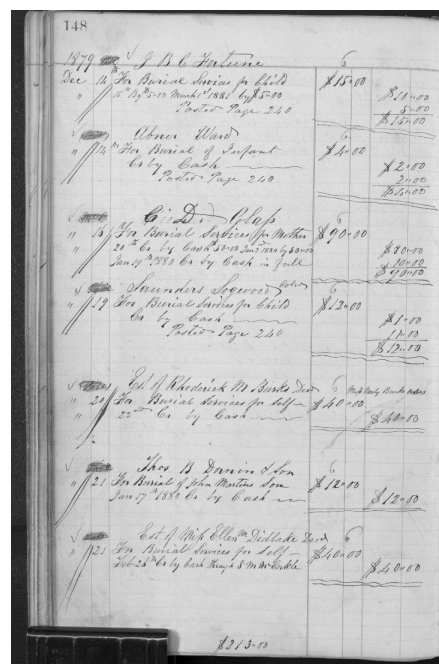 148
1879 J B C Fortune
Dec 14th For Burial Services for Child $15.00
15th By $5.00 March 1st 1881 by $5.00 $10.00
5.00
Posted Page 240 $15.00
Abner Ward
" 14th For Burial of Infant $4.00
Cr by Cash $2.00
Posted Page 240 2.00
$4.00
" For Burial Services for Mother $90.00
20th Cr by Cash
Jan 19th 1880 Cr by Cash in full 10.00
$90.00
Saunders
" 19 For Burial Services for Child $12.00
Cr by Cash $1.00
Posted Page 240 11.00
$12.00
Est of Rhoderick M Burks Decd
" 20 For Burial Services for Self $40.00
" 22nd Cr by Cash $40.00
Thos B & Son
" 21 For Burial of John Martins Son $12.00
Jan 17th 1880 Cr by Cash $12.00
Est of Miss Ellen Didlake Decd
" 21 For Burial Services for Self $40.00
Feb 26th Cr by Cash through S M $40.00
$213.00